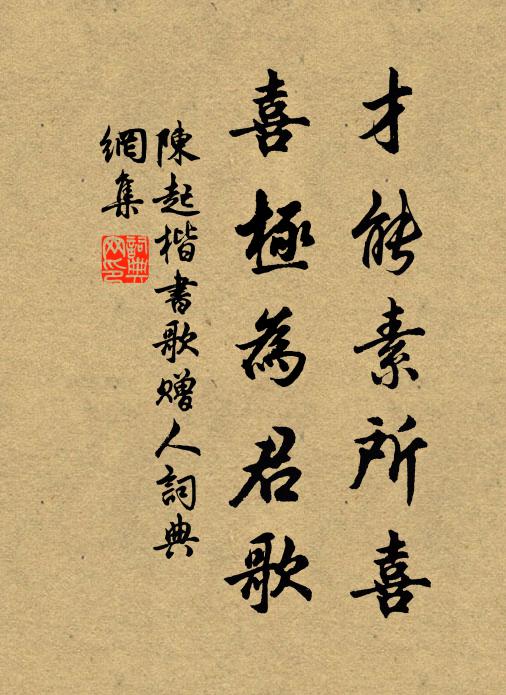 才能素所喜
喜極為君歌
陳起楷書歌贈人詞典
網集
詞典网印